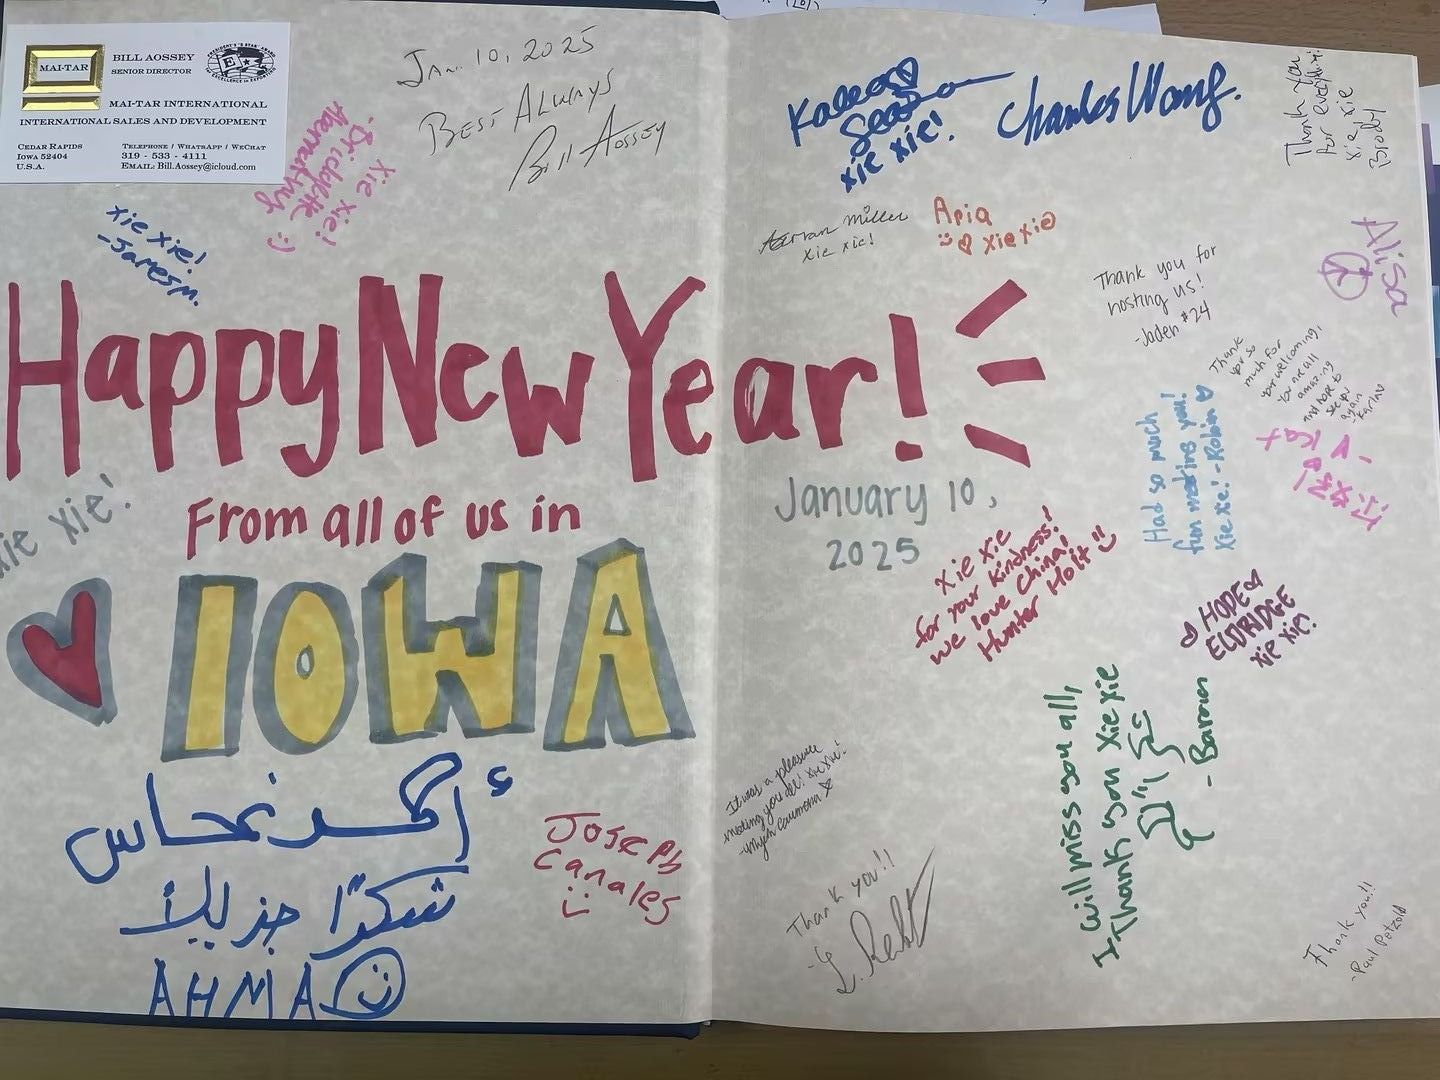 MAI-TAR
BILL AOSSEY
SENIOR DIRECTOR
PRESIDENT'S "E STAR" AWARD
E
EXCELLENCE IN EXPORTING
MAI-TAR INTERNATIONAL
INTERNATIONAL SALES AND DEVELOPMENT
CEDAR RAPIDS
IOWA 52404
U.S.A.
TELEPHONE / WHATSAPP / WECHAT
319 - 533 - 4111
EMAIL: Bill.Aossey@icloud.com
Jan. 10, 2025
BEST ALWAYS
Bill Aossey
Xie Xie!
-Bridgette
:)
xie xie!
-James M.
Happy New Year!
From all of us in
IOWA
xie xie!
أحمد نحاس
شكرًا جزيلاً
AHMAD
Joseph
Canales
xie xie!
Charles Wong.
Thank you
for everything!
xie xie
Brody
Miller
xie xie!
Aria
xie xie
Thank you for
hosting us!
-Jaden #24
Alisa
Thank
you so
much for
your welcoming,
you are all
amazing
and hope to
see you
again
January 10,
2025
Had so much
fun meeting you!
Xie xie! -Robin
- Kat
xie xie
for your kindness!
we love China!
Hunter Holt
HOPE
ELDRIDGE
xie xie!
I will miss you all,
Thank you xie xie
- Baron
It was a pleasure
meeting you all! xie xie!
Thank you!!
Thank you!!
-Paul Petzold